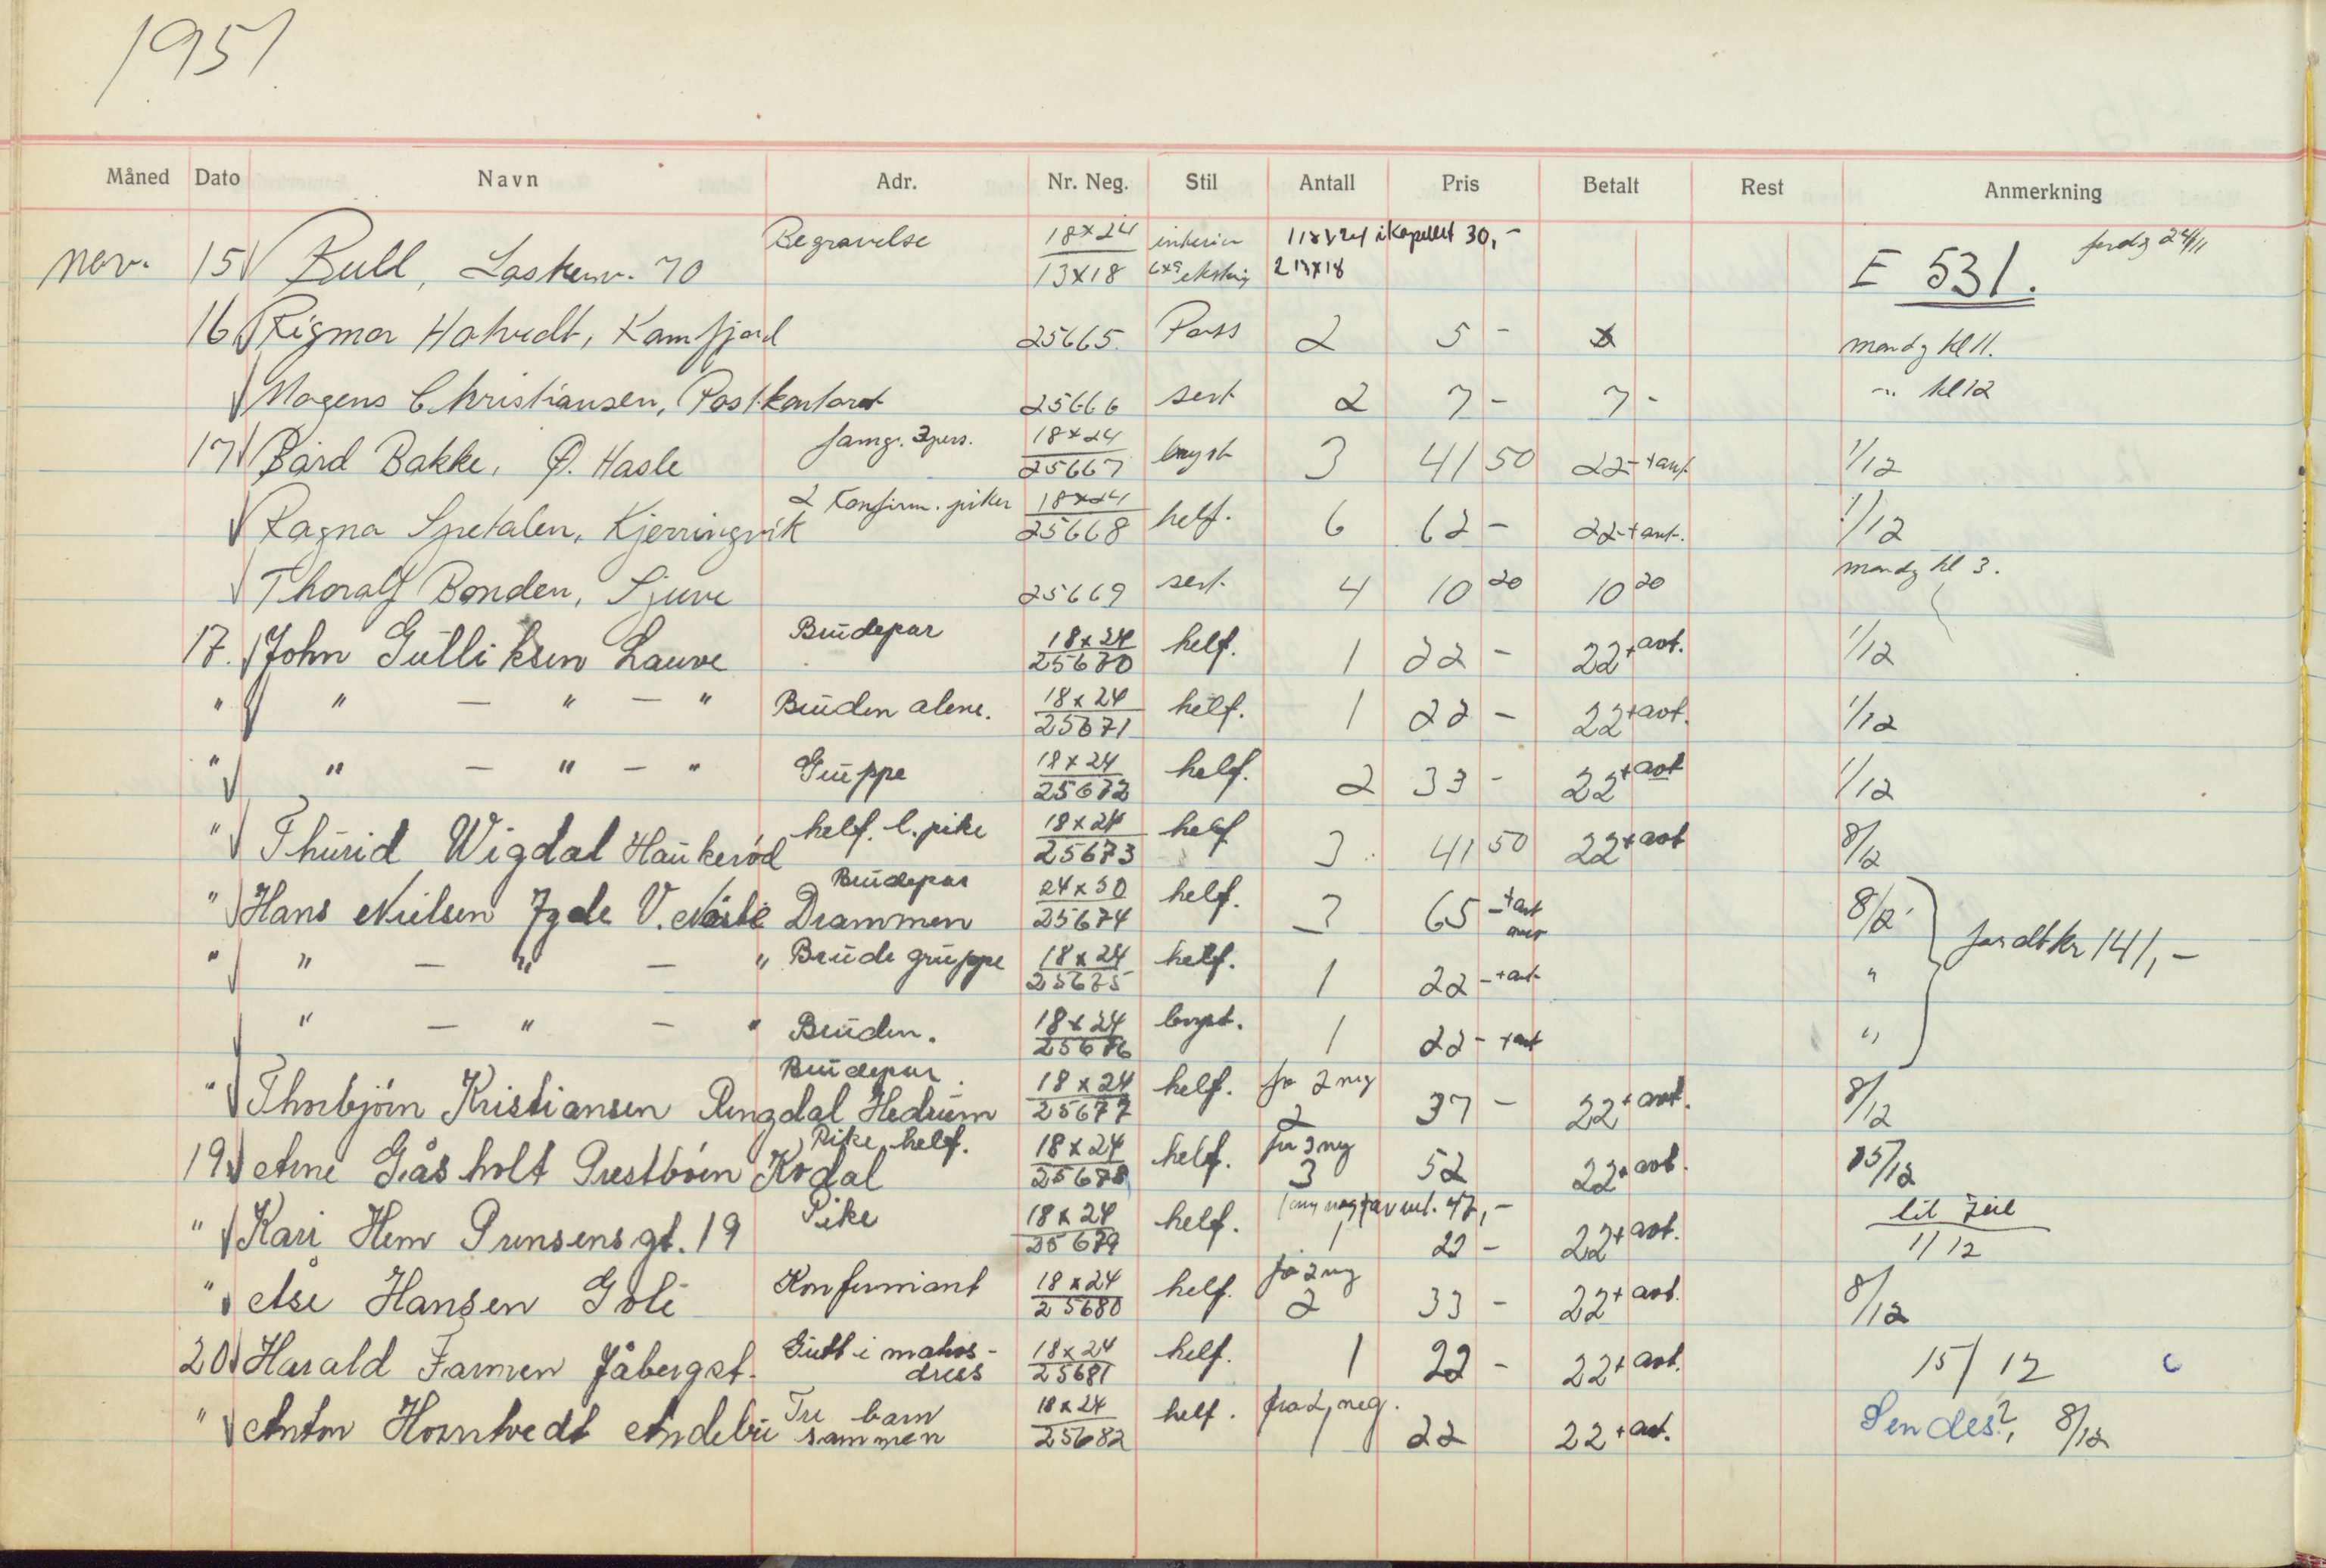 1951
Måned Dato Navn Adr. Nr. Neg. Stil Antall Pris Betalt Rest Anmerkning
nov. 15 Bull, 70 Begravelse 18x24 13x18 interiør 6x9 1 18x24 i kapellet 30,- 2 13x18 E 531. ferdig 24/11
16 Rigmor Hotvedt, Kamfjord 25665 Pass 2 5 - x mandg kl 11.
Mogens Christiansen, Postkontoret 25666 sert 2 7 - 7 - " kl 12
17 Bård Bakke, Ø. Hasle famgr. 3 pers. 18x24 25667 bryst 3 41 50 22 - + ant 1/12
Ragna Spetalen, Kjerringvik 2 Konfirm. piker 18x24 25668 helf. 6 62 - 22 - + ant. 1/12
Thoralf Bonden, Sjuve 25669 sert. 4 10 20 10 20 mandg kl 3.
17. John Gulliksen Lauve Brudepar 18x24 25670 helf. 1 22 - 22 + aot. 1/12
" " - " - " Bruden alene. 18x24 25671 helf. 1 22 - 22 + aot. 1/12
" " - " - " Gruppe 18x24 25672 helf. 2 33 - 22 + aot 1/12
" Thurid Wigdal Haukerød helf. l. pike 18x24 25673 helf 3 41 50 22 + aot 8/12
" Hans Nielsen V. Drammen Brudepar 24x30 25674 helf. 3 65 - + ant 8/12
" " - " - " Brude gruppe 18x24 25675 helf. 1 22 - + ant " kr 141,-
" - " - " Bruden. 18x24 25676 bryst. 1 22 - + ant "
" Thorbjörn Kristiansen Ringdal Hedrum Brudepar 18x24 25677 helf. fra 2 neg 2 37 - 22 + aot. 8/12
19 Arne Gåsholt Prestbøen Kodal Pike helf. 18x24 25678 helf. fra 3 neg 3 52 22 + aot. 15/12
" Kari Hem Prinsensgt. 19 Pike 18x24 25679 helf. 47,- 1 22 - 22 + aot. til Jul 1/12
" Åse Hansen Goli Konfirmant 18x24 25680 helf. fra 2 neg 2 33 - 22 + aot. 8/12
20 Harald Farmen Jåbergst. Gutt i matros-dress 18x24 25681 helf. 1 22 - 22 + aot. 15/12
" Anton Horntvedt Andebu Tre barn sammen 18x24 25682 helf. fra 2, neg. 1 22 22 + aot. Sendes?, 8/12